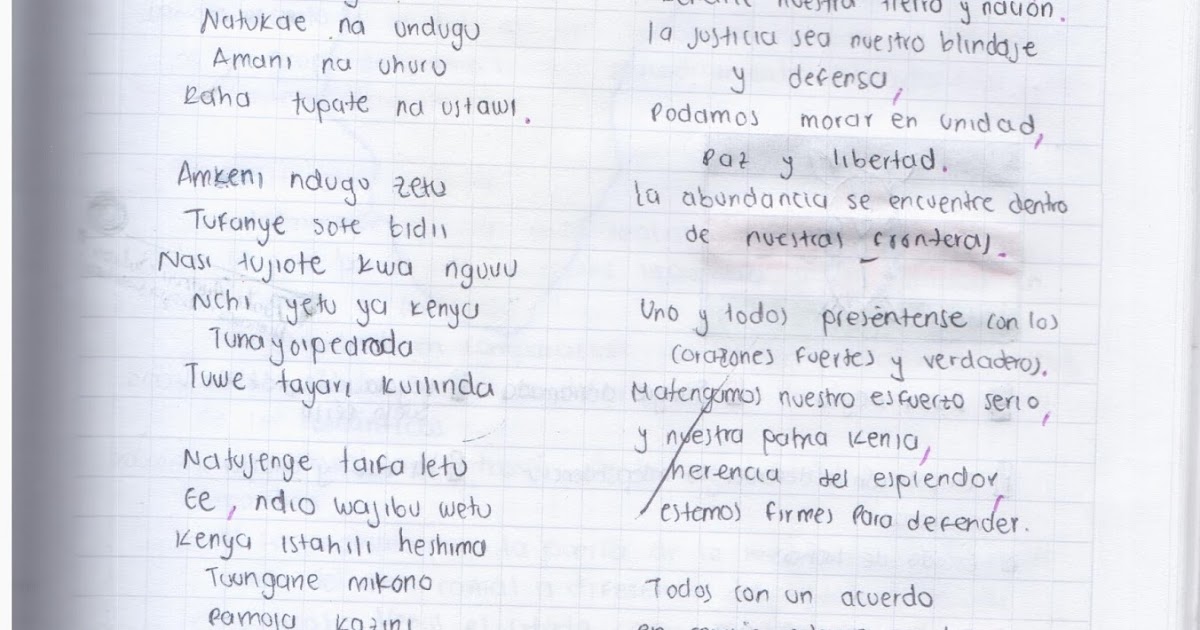 Natukae na undugu
Amani na uhuru
Raha tupate na ustawi.
Amkeni ndugu zetu
Tufanye sote bidii
Nasi tujiote kwa nguvu
Nchi yetu ya Kenya
Tunayoipedroda
Tuwe tayari kuilinda
Natujenge taifa letu
Ee, ndio wajibu wetu
Kenya istahili heshima
Tuungane mikono
pamoja kazini
nuestra tierra y nación.
la justicia sea nuestro blindaje
y defensa,
Podamos morar en unidad,
Paz y libertad.
la abundancia se encuentre dentro
de nuestras fronteras.
Uno y todos preséntense con los
corazones fuertes y verdaderos.
Matengamos nuestro esfuerto serio,
y nuestra patria Kenia,
herencia del esplendor,
estemos firmes para defender.
Todos con un acuerdo
en